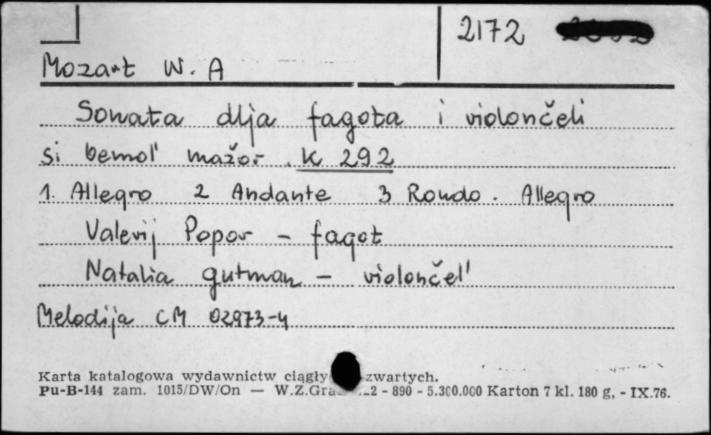 2172
Mozart W. A
Sonata dlja fagota i violončeli
si bemol' mažor K 292
1. Allegro 2 Andante 3 Rondo. Allegro
Valerij Popov – fagot
Natalia gutman – violončel'
Melodija CM 02973-4
Karta katalogowa wydawnictw ciągły zwartych.
Pu-B-144 zam. 1015/DW/On — W.Z.Gra 2 - 890 - 5.300.000 Karton 7 kl. 180 g, - IX.76.